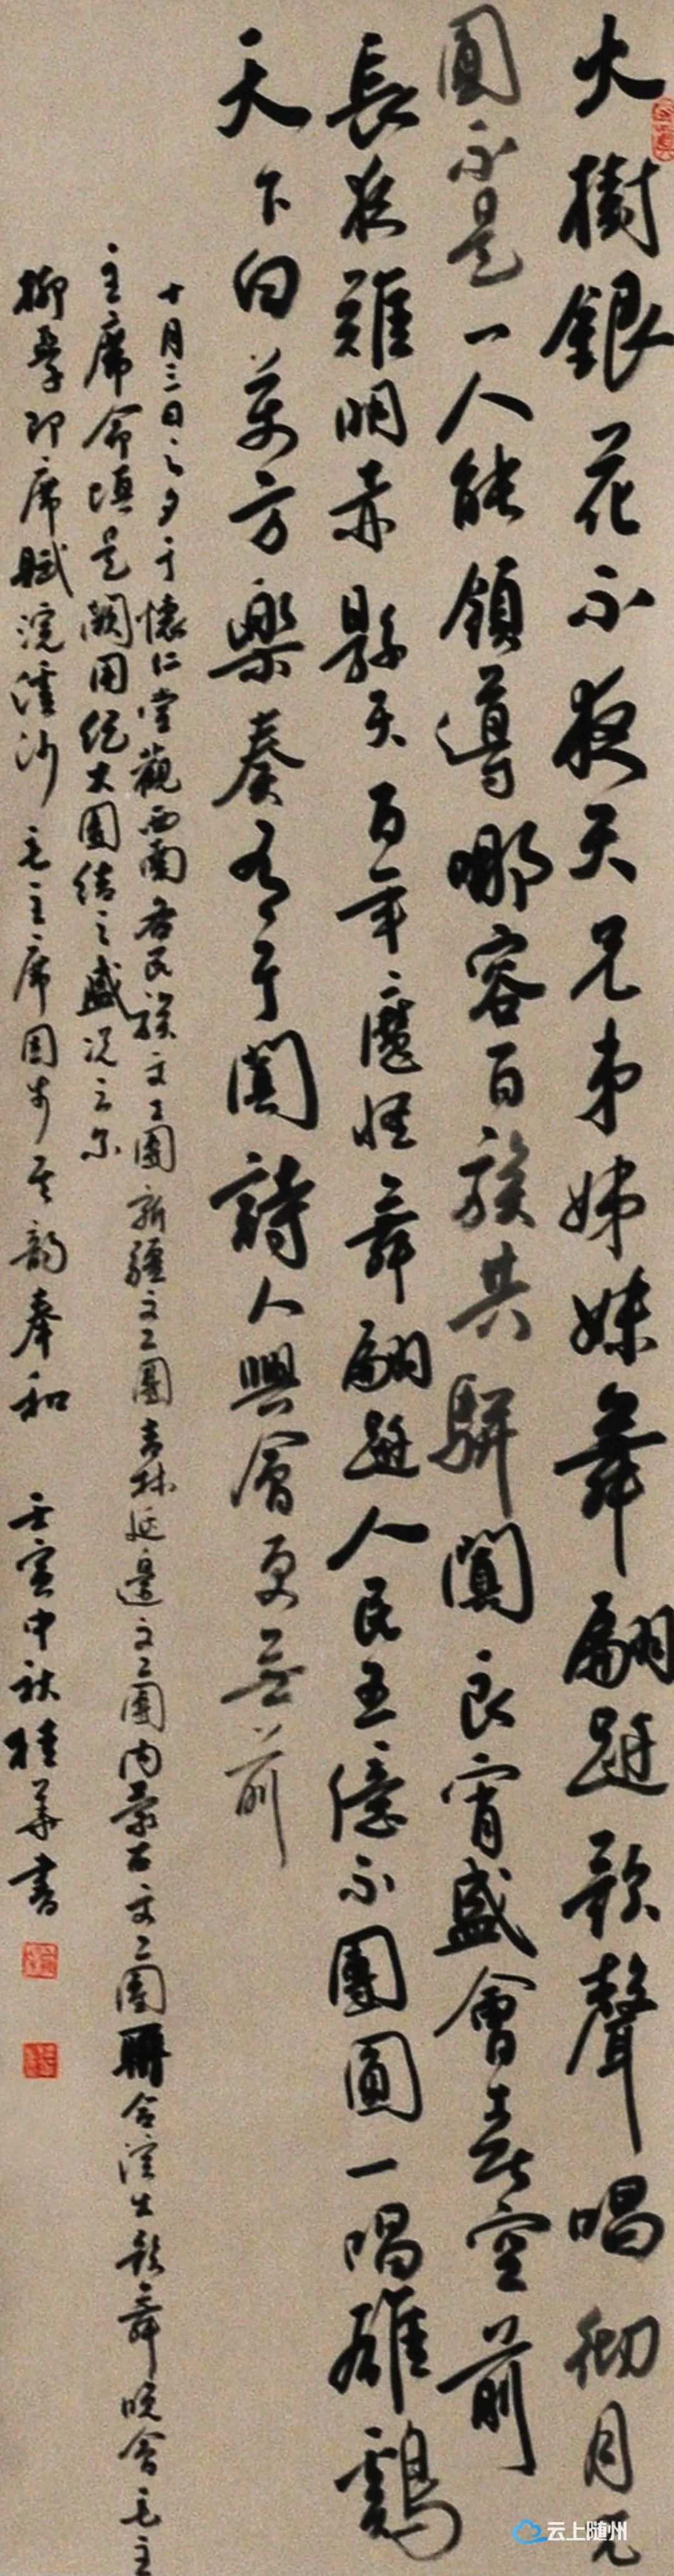 火樹銀花不夜天兄弟姊妹舞翩跹歌聲唱彻月兒
圓不是一人能領導哪容百族共駢闐良宵盛會喜空前
長夜難明赤縣天百年魔怪舞翩跹人民五億不團圓一唱雄鷄
天下白萬方樂奏有于闐詩人興會更無前
十月三日之夕于懷仁堂觀西南各民族文工團新疆文工團吉林延邊文工團内蒙古文工團聯合演出歌舞晚會毛主
主席命填是闋用纪大團结之盛况云尔
柳亞子即席賦浣溪沙毛主席因步其韵奉和 壬寅中秋桂華書
云上随州